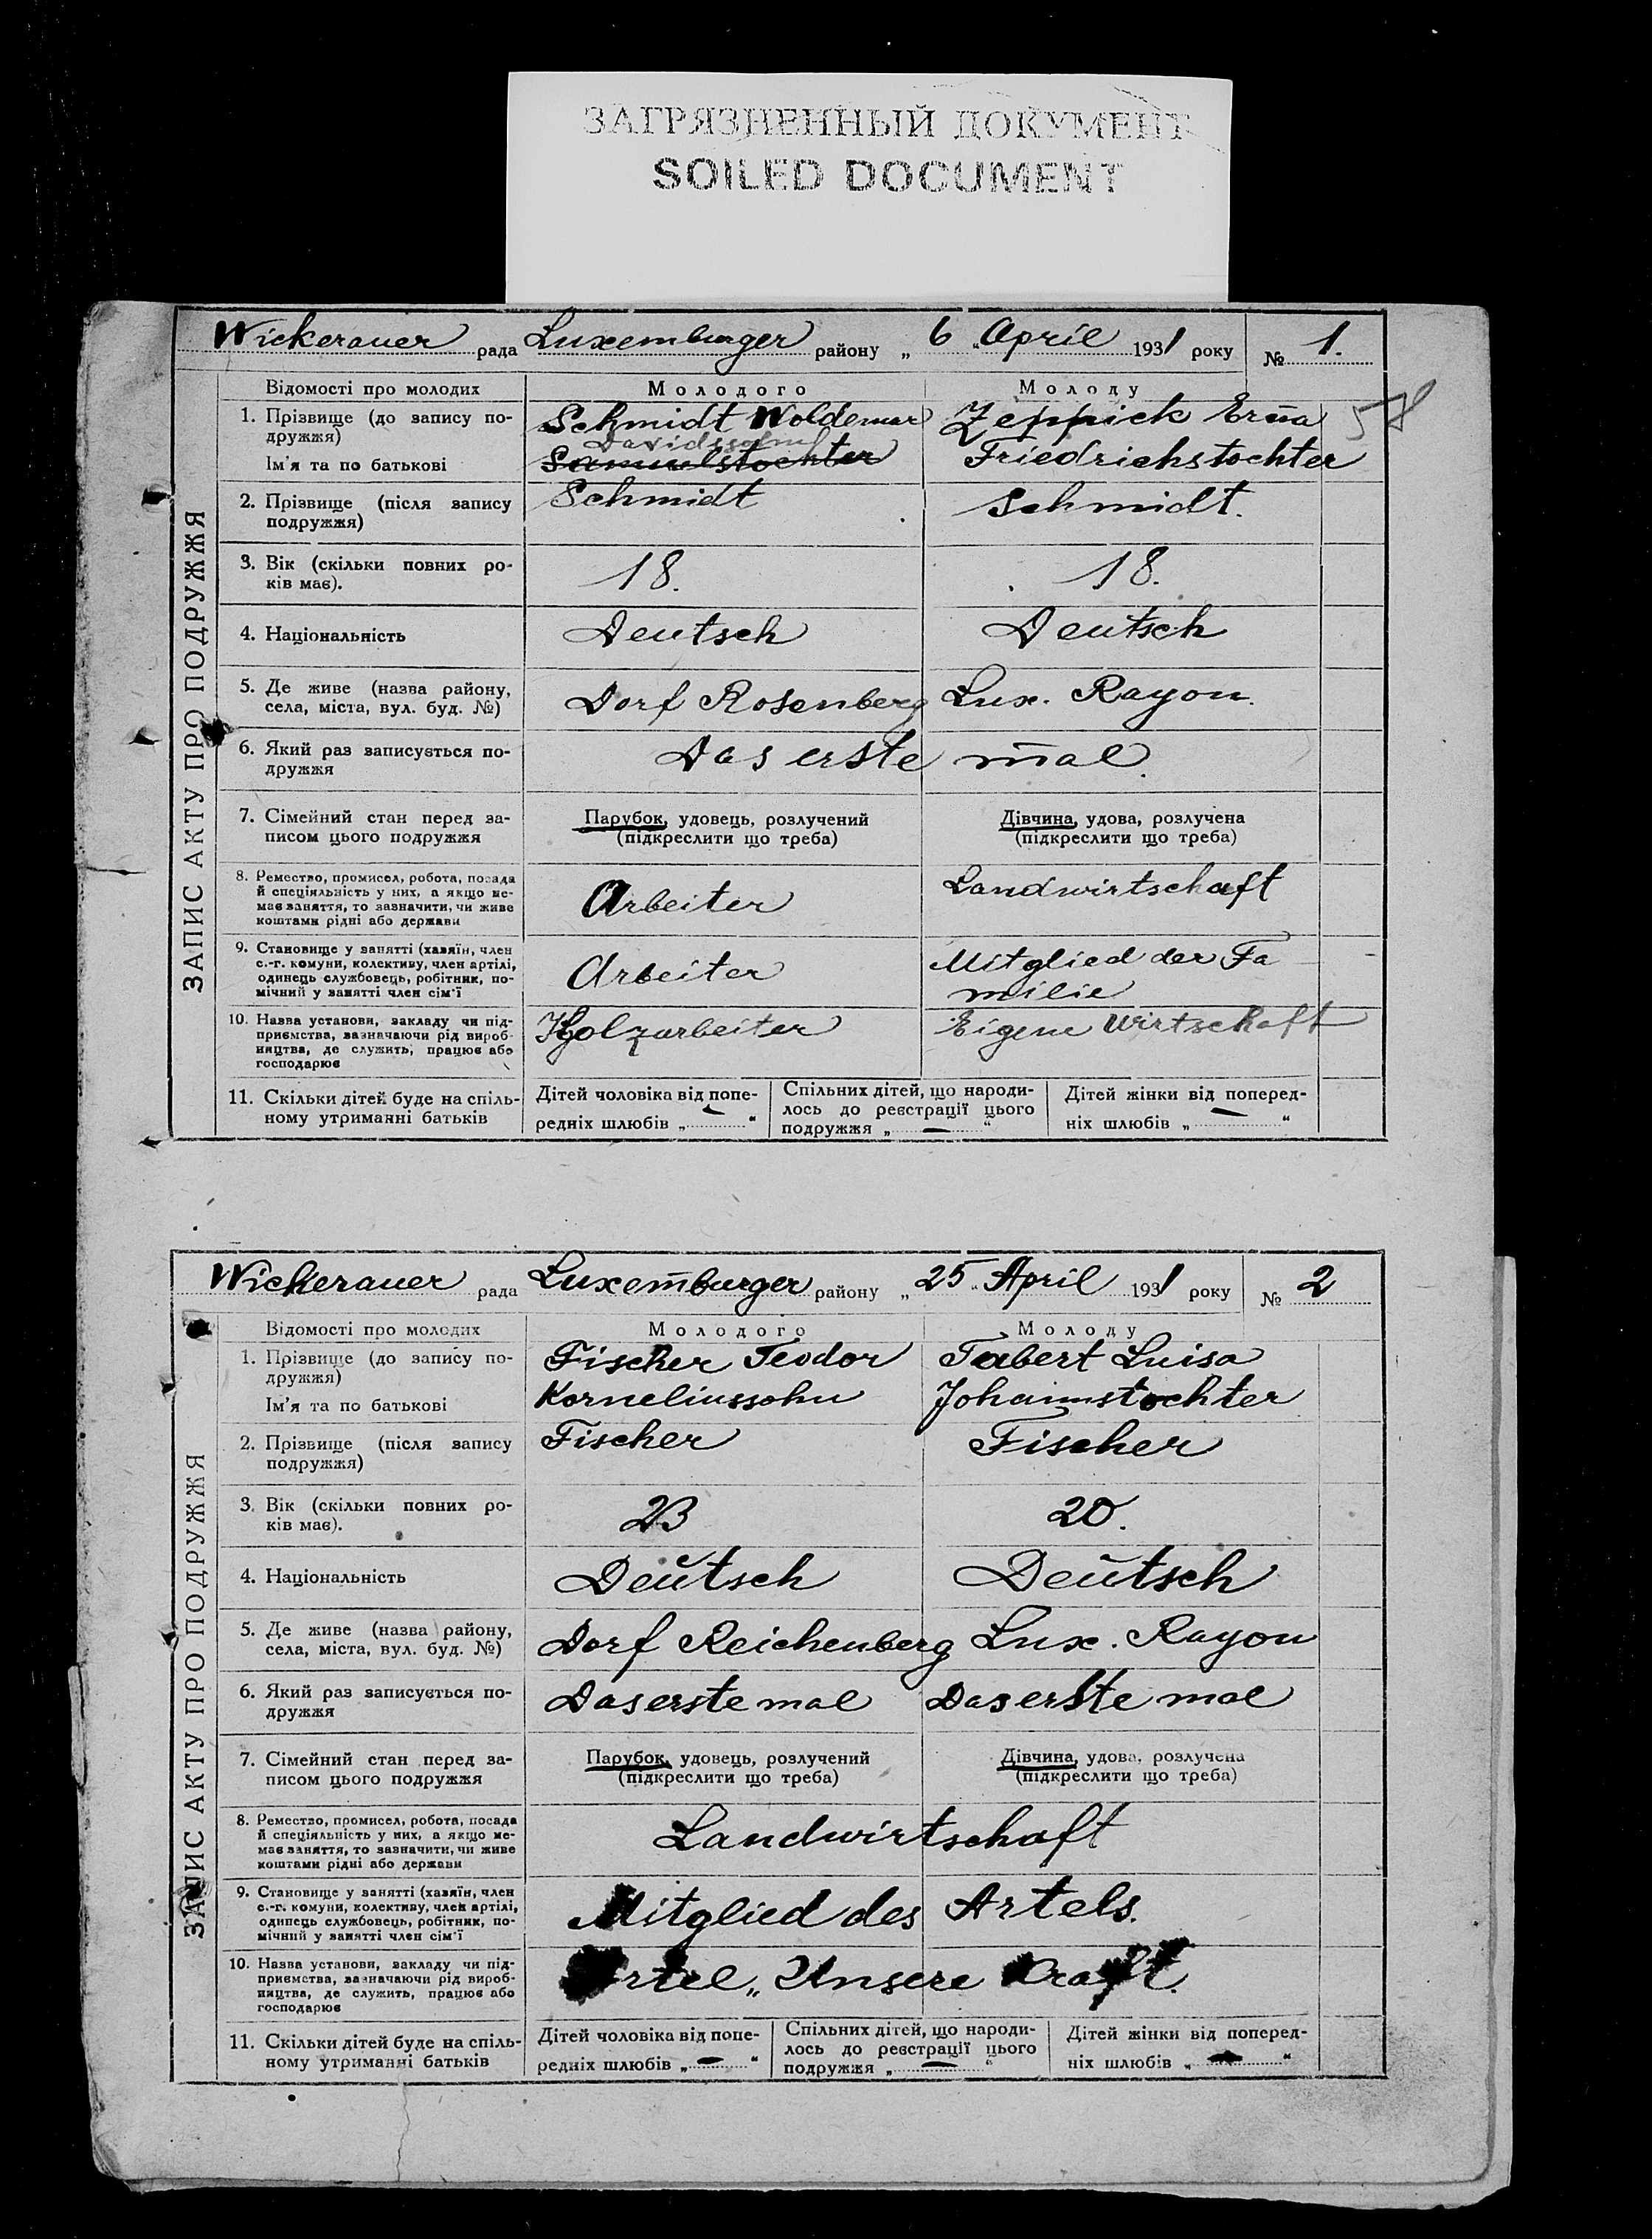 ЗАГРЯЗНЕННЫЙ ДОКУМЕНТ
SOILED DOCUMENT
Wickerauer рада Luxemburger району „ 6 “ April 1931 року № 1.
58
ЗАПИС АКТУ ПРО ПОДРУЖЖЯ
Відомості про молодих Молодого Молоду
1. Прізвище (до запису по- Schmidt Woldemar Zeppick Erna
дружжя) Davidssohn
Ім'я та по батькові Samuelstochter Friedrichstochter
2. Прізвище (після запису Schmidt Schmidt.
подружжя)
3. Вік (скільки повних ро- 18. 18.
ків має).
4. Національність Deutsch Deutsch
5. Де живе (назва району, Dorf Rosenberg Lux. Rayon.
села, міста, вул. буд. №)
6. Який раз записується по- Das erste mal.
дружжя
7. Сімейний стан перед за- Парубок, удовець, розлучений Дівчина, удова, розлучена
писом цього подружжя (підкреслити що треба) (підкреслити що треба)
8. Ремество, промисел, робота, посада Landwirtschaft
й спеціяльність у них, а якщо не-
має заняття, то зазначити, чи живе Arbeiter
коштами рідні або держави
9. Становище у занятті (хазяїн, член Mitglied der Fa
с.-г. комуни, колективу, член артілі, Arbeiter
одинець службовець, робітник, по- milie
мічний у занятті член сім'ї
10. Назва установи, закладу чи під- Holzarbeiter Eigene Wirtschaft
приємства, зазначаючи рід вироб-
ництва, де служить, працює або
господарює
11. Скільки дітей буде на спіль- Дітей чоловіка від попе- Спільних дітей, що народи- Дітей жінки від поперед-
ному утриманні батьків редніх шлюбів „ — “ лось до реєстрації цього ніх шлюбів „ — “
подружжя „ — “
Wickerauer рада Luxemburger району „ 25 “ April 1931 року № 2
ЗАПИС АКТУ ПРО ПОДРУЖЖЯ
Відомості про молодих Молодого Молоду
1. Прізвище (до запису по- Fischer Teodor Tabert Luisa
дружжя)
Ім'я та по батькові Korneliussohn Johannstochter
2. Прізвище (після запису Fischer Fischer
подружжя)
3. Вік (скільки повних ро- 23 20.
ків має).
4. Національність Deutsch Deutsch
5. Де живе (назва району, Dorf Reichenberg Lux. Rayon
села, міста, вул. буд. №)
6. Який раз записується по- Das erste mal Das erste mal
дружжя
7. Сімейний стан перед за- Парубок, удовець, розлучений Дівчина, удова, розлучена
писом цього подружжя (підкреслити що треба) (підкреслити що треба)
8. Ремество, промисел, робота, посада
й спеціяльність у них, а якщо не- Landwirtschaft
має заняття, то зазначити, чи живе
коштами рідні або держави
9. Становище у занятті (хазяїн, член
с.-г. комуни, колективу, член артілі, Mitglied des Artels.
одинець службовець, робітник, по-
мічний у занятті член сім'ї
10. Назва установи, закладу чи під-
приємства, зазначаючи рід вироб- Artel „Unsere Kraft.
ництва, де служить, працює або
господарює
11. Скільки дітей буде на спіль- Дітей чоловіка від попе- Спільних дітей, що народи- Дітей жінки від поперед-
ному утриманні батьків редніх шлюбів „ — “ лось до реєстрації цього ніх шлюбів „ — “
подружжя „ — “